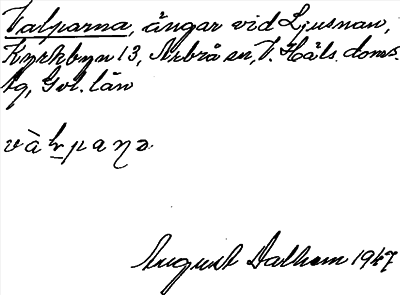 Valparna, ängar vid Ljusnan,
Kyrkbyn 13, Arbrå sn, V. Häls. doms.
tg, Gvl. län
vàḷpaṇa
August Dalhem 1947